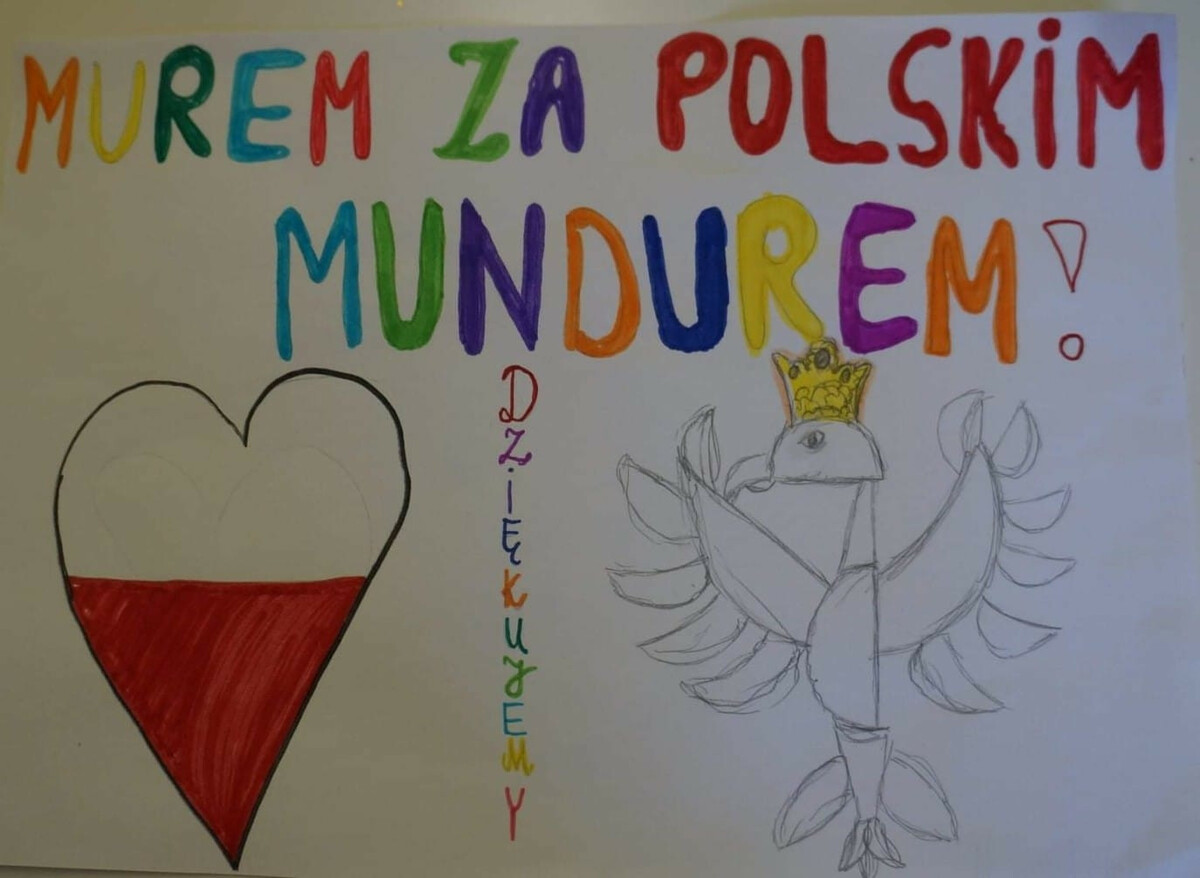 MUREM ZA POLSKIM
MUNDUREM!
DZIĘKUJEMY